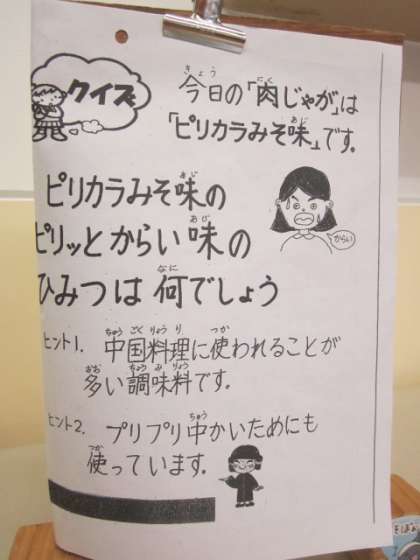 クイズ
今日の「肉じゃが」は
「ピリカラみそ味」です。
ピリカラみそ味の
ピリッとからい味の
ひみつは何でしょう
からい
ヒント1. 中国料理に使われることが
多い調味料です。
ヒント2. プリプリ中かいためにも
使っています。